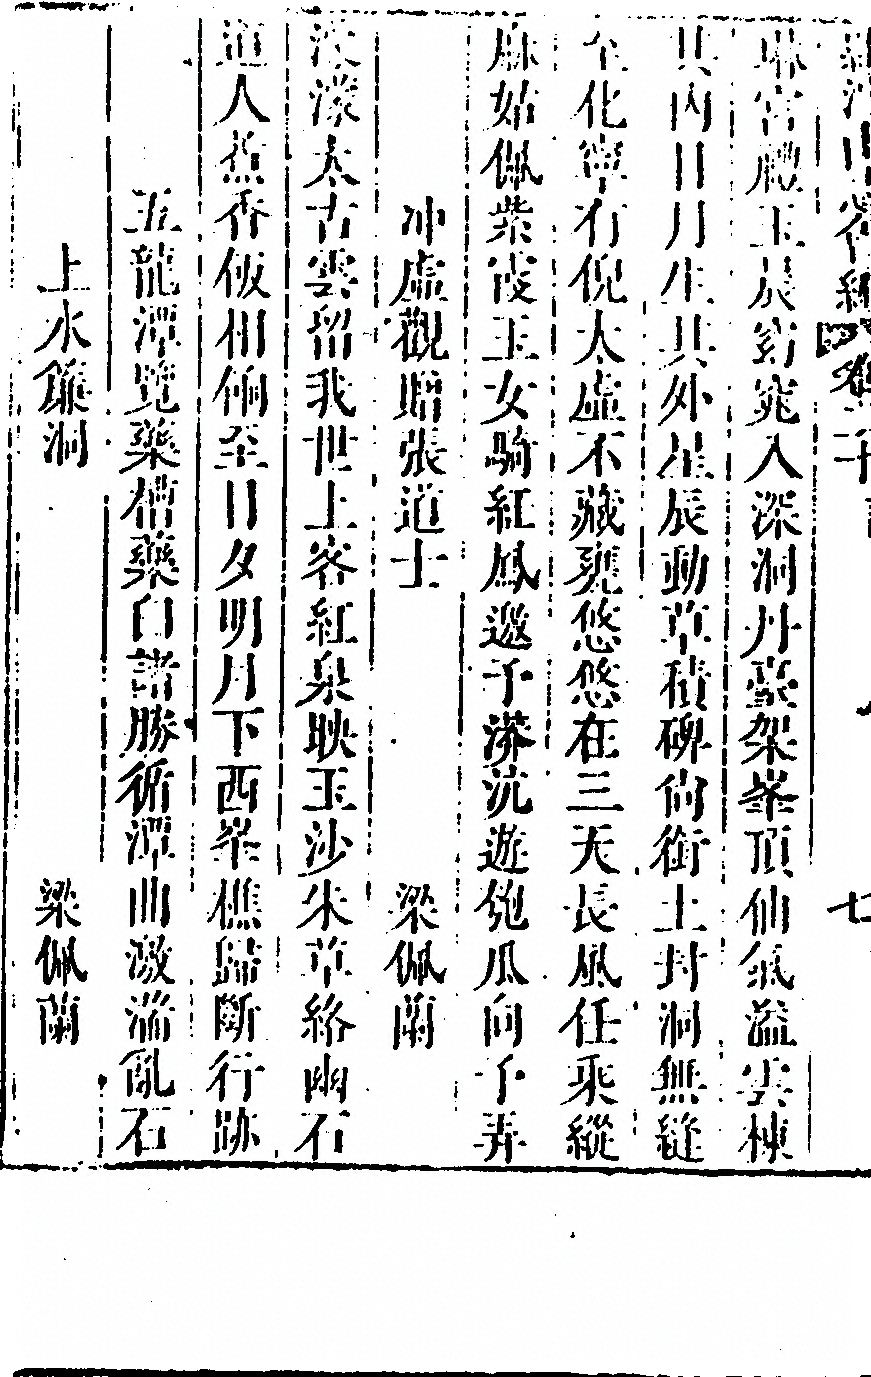 羅浮山志會編 卷二十 七
琳宮禮玉晨窈窕入深洞丹臺架峯頂仙氣溢雲棟
其內日月生其外星辰動草積碑尚銜土封洞無縫
至化寧有倪太虛不藏甕悠悠在三天長風任乘縱
麻姑佩紫霞玉女騎紅鳳邀予漭沆遊匏瓜向予弄
沖虛觀贈張道士 梁佩蘭
濛太古雲留我世上客紅泉映玉沙朱草絡幽石
道人蒸香飯相餉至日夕明月下西峯樵歸斷行跡
五龍潭覽藥槽藥臼諸勝循潭曲激湍亂石
上水簾洞 梁佩蘭